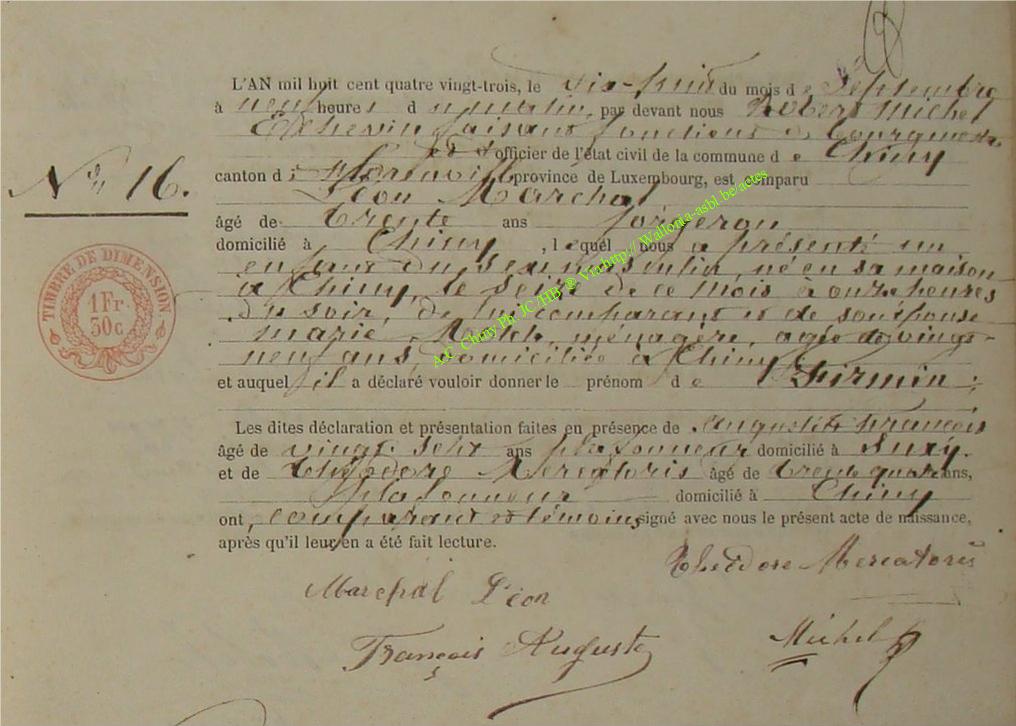 L'AN mil huit cent quatre vingt-trois, le dix-huit du mois de Septembre
à neuf heures du matin, par devant nous Robert Michel
Echevin faisant fonctions de bourgmestre
et d'officier de l'état civil de la commune de Chiny
canton de Florenville province de Luxembourg, est comparu
Léon Marchal
âgé de trente ans forgeron
domicilié à Chiny, lequel nous a présenté un
enfant du sexe masculin, né en sa maison
à Chiny, le seize de ce mois à onze heures
du soir, de lui comparant et de son épouse
marie, ménagère, agée de vingt-
neuf ans, domiciliée à Chiny
et auquel il a déclaré vouloir donner le prénom de Firmin;
Les dites déclaration et présentation faites en présence de Auguste François
âgé de vingt sept ans plafonneur domicilié à Suxy.
et de Théodore Mercatoris âgé de trente quatre ans,
plafonneur domicilié à Chiny
ont, comparant et témoins signé avec nous le présent acte de naissance,
après qu'il leur en a été fait lecture.
Théodore Mercatoris
Marchal Léon
François Auguste
Michel R
N° 16.
TIMBRE DE DIMENSION
1 Fr.
30c
A.C. Chiny Ph JC /HB @ Via http:// Wallonia-asbl.be/actes